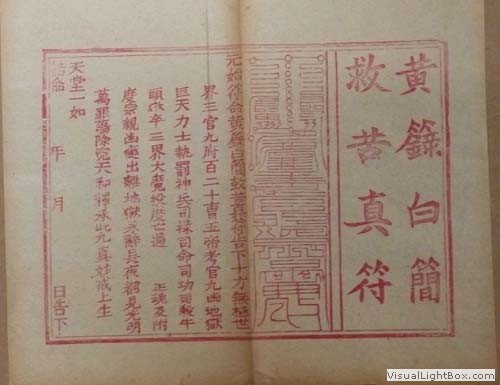 黃籙白簡
救苦真符
元始符命黃籙白簡救苦真符告下十方無極世
界三官九府百二十曹五帝考官九幽地獄
巨天力士執罰神兵司祿司命司功司殺牛
頭獄卒三界大魔投度亡過 正魂及附
度宗親幽爽出離地獄永辭長夜覩見光明
萬罪蕩除冤仇和釋承此九真妙戒上生
天堂一如
誥命 年 月 日告下
VisualLightBox.com